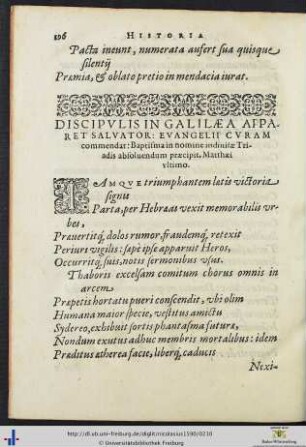 196 HISTORIA
Pacta ineunt, numerata aufert sua quisque
silentij
Præmia, & oblato pretio in mendacia iurat.
DISCIPVLIS IN GALILÆA APPA-
RET SALVATOR: EVANGELII CVRAM
commendat: Baptisma in nomine indiuiæ Tri-
adis absoluendum præcipit. Matthæi
vltimo.
IAMQVE triumphantem latis victoria
signis
Parta, per Hebræas vexit memorabilis vr-
bes,
Præuertitq́, dolos rumor, fraudemq́, retexit
Periuri vigilis: sæpè ipse apparuit Heros,
Occurritq́, suis, notis sermonibus vsus.
Thaboris excelsam comitum chorus omnis in
arcem
Præpetis hortatu pueri conscendit, vbi olim
Humana maior specie, vestitus amictu
Sydereo, exhibuit sortis phantasma futuræ,
Nondum exutus adhuc membris mortalibus: idem
Præditus ætherea facie, liberq́, caducis
Next-
http://dl.ub.uni-freiburg.de/diglit/nicolausius1590/0210
© Universitätsbibliothek Freiburg
Baden-Württemberg